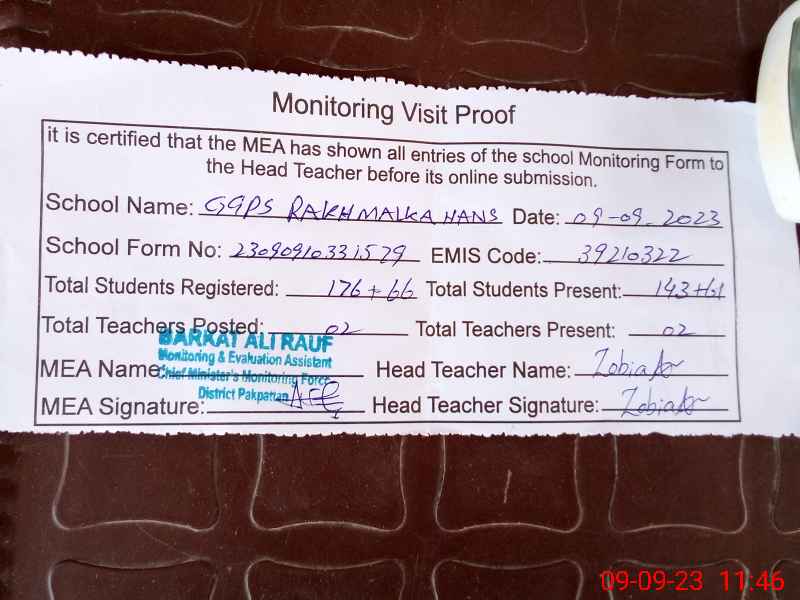 Monitoring Visit Proof
it is certified that the MEA has shown all entries of the school Monitoring Form to
the Head Teacher before its online submission.
School Name: GGPS RAKH MALKA HANS Date: 09-09-2023
School Form No: 23090910331579 EMIS Code: 39210322
Total Students Registered: 176+66 Total Students Present: 143+61
Total Teachers Posted: 02 Total Teachers Present: 02
BARKAT ALI RAUF
Monitoring & Evaluation Assistant
MEA Name: Head Teacher Name: Zobia
Chief Minister's Monitoring Force
District Pakpattan
MEA Signature: Head Teacher Signature: Zobia
09-09-23 11:46